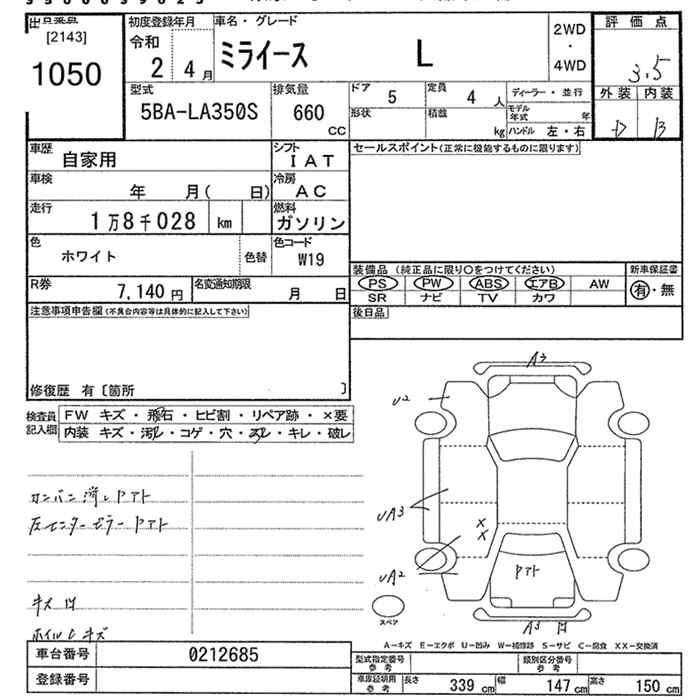 出品業店
[2143]
1050
初度登録年月
令和
2 4月
車名・グレード
ミライース L
2WD
・
4WD
評価点
3.5
外装 内装
D B
型式
5BA-LA350S
排気量
660
CC
ドア 5
定員 4人
ディーラー・並行
形状
積載 kg
モデル年式 年
ハンドル 左・右
車歴
自家用
シフト
IAT
車検
年 月( 日)
冷房
AC
走行
1万8千028 km
燃料
ガソリン
色
ホワイト
色替
色コード
W19
R券
7,140円
名変通知期限
月 日
セールスポイント(正常に機能するものに限ります)
装備品 (純正品に限り○をつけてください)
新車保証書
PS PW ABS エアB AW
有・無
SR ナビ TV カワ
後日品
注意事項申告欄(不具合内容等は具体的に記入して下さい)
修復歴 有〔箇所 〕
検査員記入欄
FW キズ・飛石・ヒビ割・リペア跡・×要
内装 キズ・汚レ・コゲ・穴・スレ・キレ・破レ
コンパン 潰し Pアト
左センターピラー Pアト
キズ 凹
ホイルC キズ
A3
U2
UA3
X
X
UA2
Pアト
A3 凹
スペア
A-キズ E-エクボ U-凹み W-補修跡 S-サビ C-腐食 XX-交換済
車台番号
0212685
登録番号
型式指定番号
参考
類別区分番号
参考
車庫証明用
参考
長さ 339 cm
幅 147 cm
高さ 150 cm